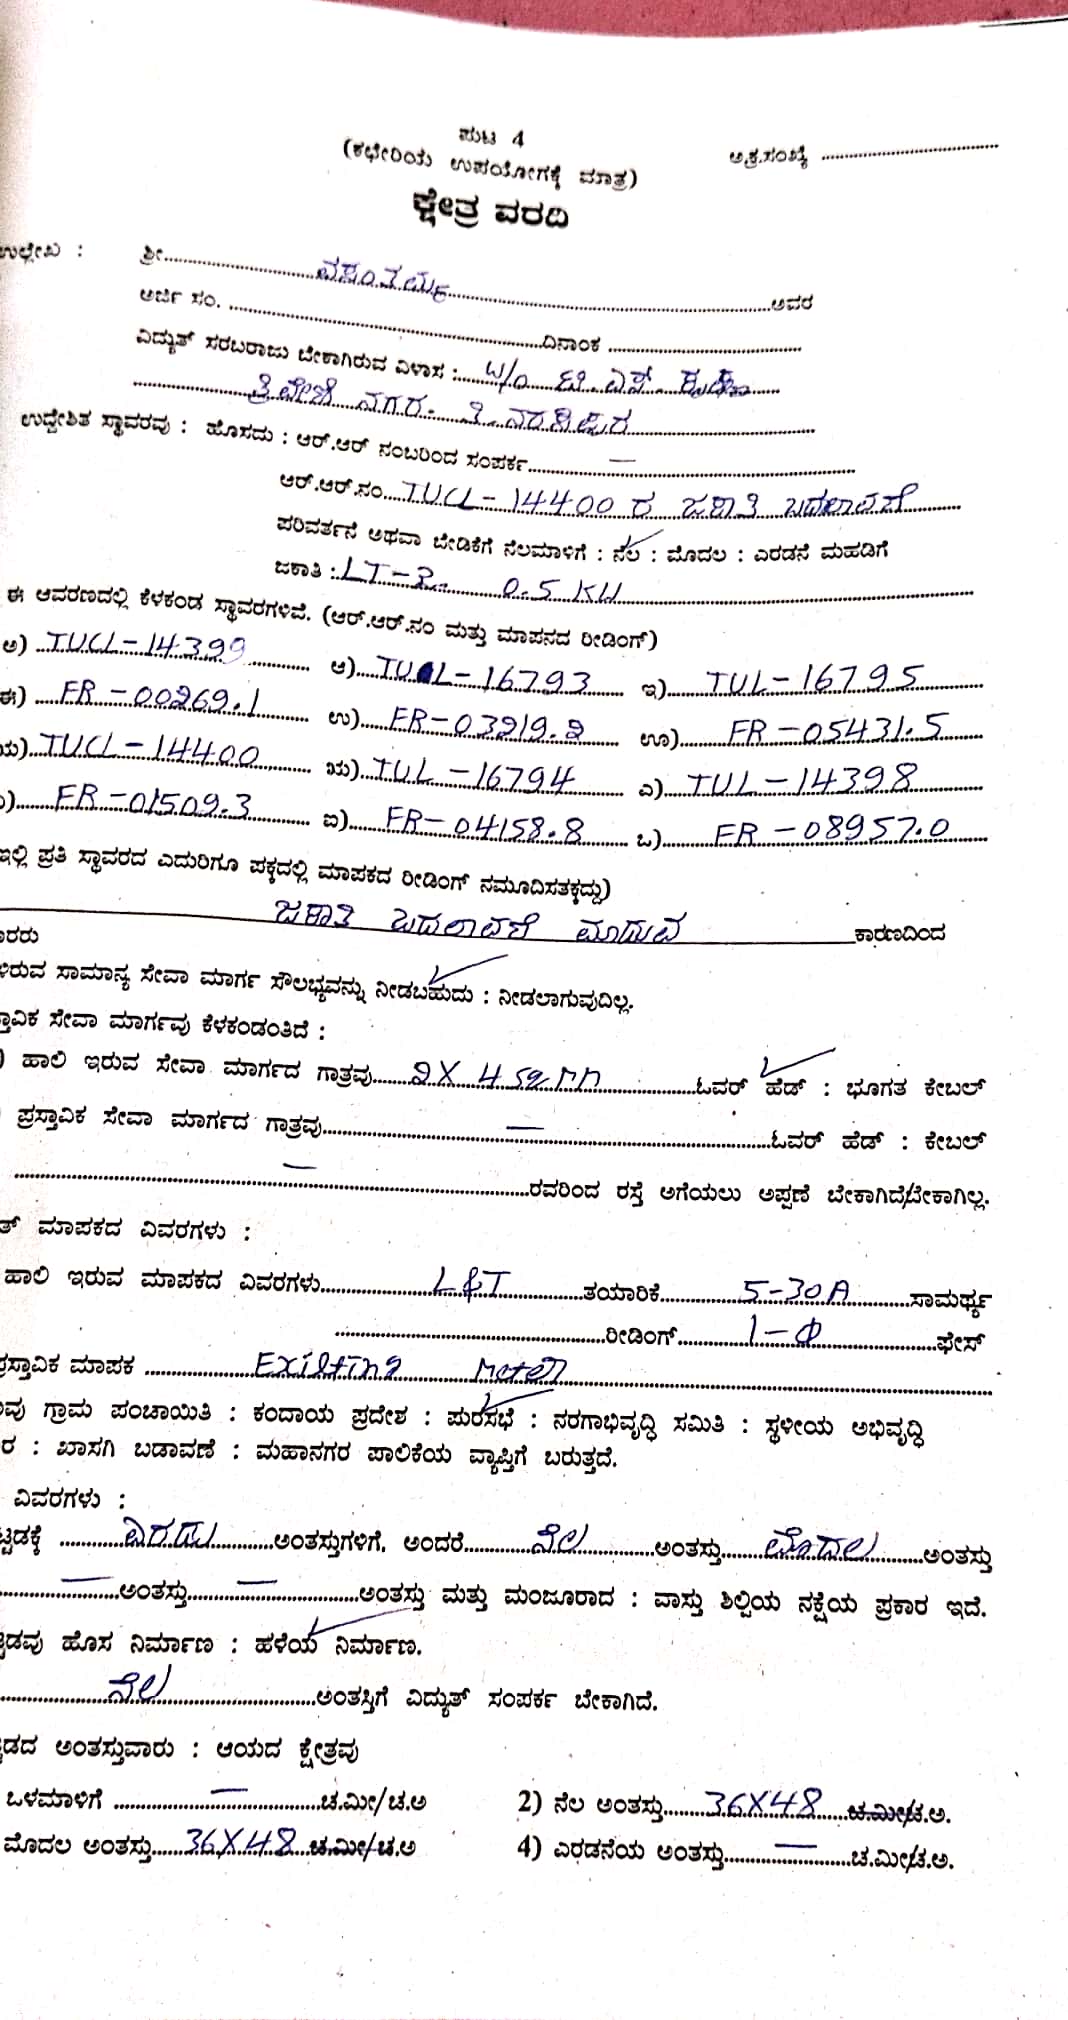 ಪುಟ 4
(ಕಛೇರಿಯ ಉಪಯೋಗಕ್ಕೆ ಮಾತ್ರ)
ಅ.ಕ್ರ.ಸಂಖ್ಯೆ
ಕ್ಷೇತ್ರ ವರದಿ
ಉಲ್ಲೇಖ : ಶ್ರೀ ವಸಂತಮ್ಮ ಅವರ
ಅರ್ಜಿ ಸಂ. ದಿನಾಂಕ
ವಿದ್ಯುತ್ ಸರಬರಾಜು ಬೇಕಾಗಿರುವ ವಿಳಾಸ : W/O ಟಿ. ಎಸ್.
ತ್ರಿವೇಣಿ ನಗರ. ತಿ. ನರಸೀಪುರ
ಉದ್ದೇಶಿತ ಸ್ಥಾವರವು : ಹೊಸದು : ಆರ್.ಆರ್ ನಂಬರಿಂದ ಸಂಪರ್ಕ —
ಆರ್.ಆರ್.ನಂ. TUCL-14400 ರ ಜಕಾತಿ ಬದಲಾವಣೆ
ಪರಿವರ್ತನೆ ಅಥವಾ ಬೇಡಿಕೆಗೆ ನೆಲಮಾಳಿಗೆ : ನೆಲ : ಮೊದಲ : ಎರಡನೆ ಮಹಡಿಗೆ
ಜಕಾತಿ : LT-2. 0.5 KW
ಈ ಆವರಣದಲ್ಲಿ ಕೆಳಕಂಡ ಸ್ಥಾವರಗಳಿವೆ. (ಆರ್.ಆರ್.ನಂ ಮತ್ತು ಮಾಪನದ ರೀಡಿಂಗ್)
ಅ) TUCL-14399 ಆ) TUL-16793 ಇ) TUL-16795
ಈ) FR-00269.1 ಉ) FR-03219.2 ಊ) FR-05431.5
ಋ) TUCL-14400 ೠ) TUL-16794 ಎ) TUL-14398
) FR-01509.3 ಐ) FR-04158.8 ಒ) FR-08957.0
ಇಲ್ಲಿ ಪ್ರತಿ ಸ್ಥಾವರದ ಎದುರಿಗೂ ಪಕ್ಕದಲ್ಲಿ ಮಾಪಕದ ರೀಡಿಂಗ್ ನಮೂದಿಸತಕ್ಕದ್ದು)
ಜಕಾತಿ ಬದಲಾವಣೆ ಮಾಡುವ ಕಾರಣದಿಂದ
ಸಾಮಾನ್ಯ ಸೇವಾ ಮಾರ್ಗ ಸೌಲಭ್ಯವನ್ನು ನೀಡಬಹುದು : ನೀಡಲಾಗುವುದಿಲ್ಲ.
ಸೇವಾ ಮಾರ್ಗವು ಕೆಳಕಂಡಂತಿದೆ :
) ಹಾಲಿ ಇರುವ ಸೇವಾ ಮಾರ್ಗದ ಗಾತ್ರವು 2X 4 sqmm ಓವರ್ ಹೆಡ್ : ಭೂಗತ ಕೇಬಲ್
ಪ್ರಸ್ತಾವಿಕ ಸೇವಾ ಮಾರ್ಗದ ಗಾತ್ರವು — ಓವರ್ ಹೆಡ್ : ಕೇಬಲ್
— ರವರಿಂದ ರಸ್ತೆ ಅಗೆಯಲು ಅಪ್ಪಣೆ ಬೇಕಾಗಿದೆ/ಬೇಕಾಗಿಲ್ಲ.
ಮಾಪಕದ ವಿವರಗಳು :
ಹಾಲಿ ಇರುವ ಮಾಪಕದ ವಿವರಗಳು L&T ತಯಾರಿಕೆ 5-30A ಸಾಮರ್ಥ್ಯ
ರೀಡಿಂಗ್ 1-Φ ಫೇಸ್
ಪ್ರಸ್ತಾವಿಕ ಮಾಪಕ Existing Meter
ಗ್ರಾಮ ಪಂಚಾಯಿತಿ : ಕಂದಾಯ ಪ್ರದೇಶ : ಪುರಸಭೆ : ನರಗಾಭಿವೃದ್ಧಿ ಸಮಿತಿ : ಸ್ಥಳೀಯ ಅಭಿವೃದ್ಧಿ
: ಖಾಸಗಿ ಬಡಾವಣೆ : ಮಹಾನಗರ ಪಾಲಿಕೆಯ ವ್ಯಾಪ್ತಿಗೆ ಬರುತ್ತದೆ.
ವಿವರಗಳು :
ಎರಡು ಅಂತಸ್ತುಗಳಿಗೆ, ಅಂದರೆ ನೆಲ ಅಂತಸ್ತು ಮೊದಲ ಅಂತಸ್ತು
— ಅಂತಸ್ತು — ಅಂತಸ್ತು ಮತ್ತು ಮಂಜೂರಾದ : ವಾಸ್ತು ಶಿಲ್ಪಿಯ ನಕ್ಷೆಯ ಪ್ರಕಾರ ಇದೆ.
ಹೊಸ ನಿರ್ಮಾಣ : ಹಳೆಯ ನಿರ್ಮಾಣ.
ನೆಲ ಅಂತಸ್ತಿಗೆ ವಿದ್ಯುತ್ ಸಂಪರ್ಕ ಬೇಕಾಗಿದೆ.
ಅಂತಸ್ತುವಾರು : ಆಯದ ಕ್ಷೇತ್ರವು
ಒಳಮಾಳಿಗೆ — ಚ.ಮೀ/ಚ.ಅ 2) ನೆಲ ಅಂತಸ್ತು 36X48 ಚ.ಮೀ/ಚ.ಅ.
ಮೊದಲ ಅಂತಸ್ತು 36X48 ಚ.ಮೀ/ಚ.ಅ 4) ಎರಡನೆಯ ಅಂತಸ್ತು — ಚ.ಮೀ/ಚ.ಅ.